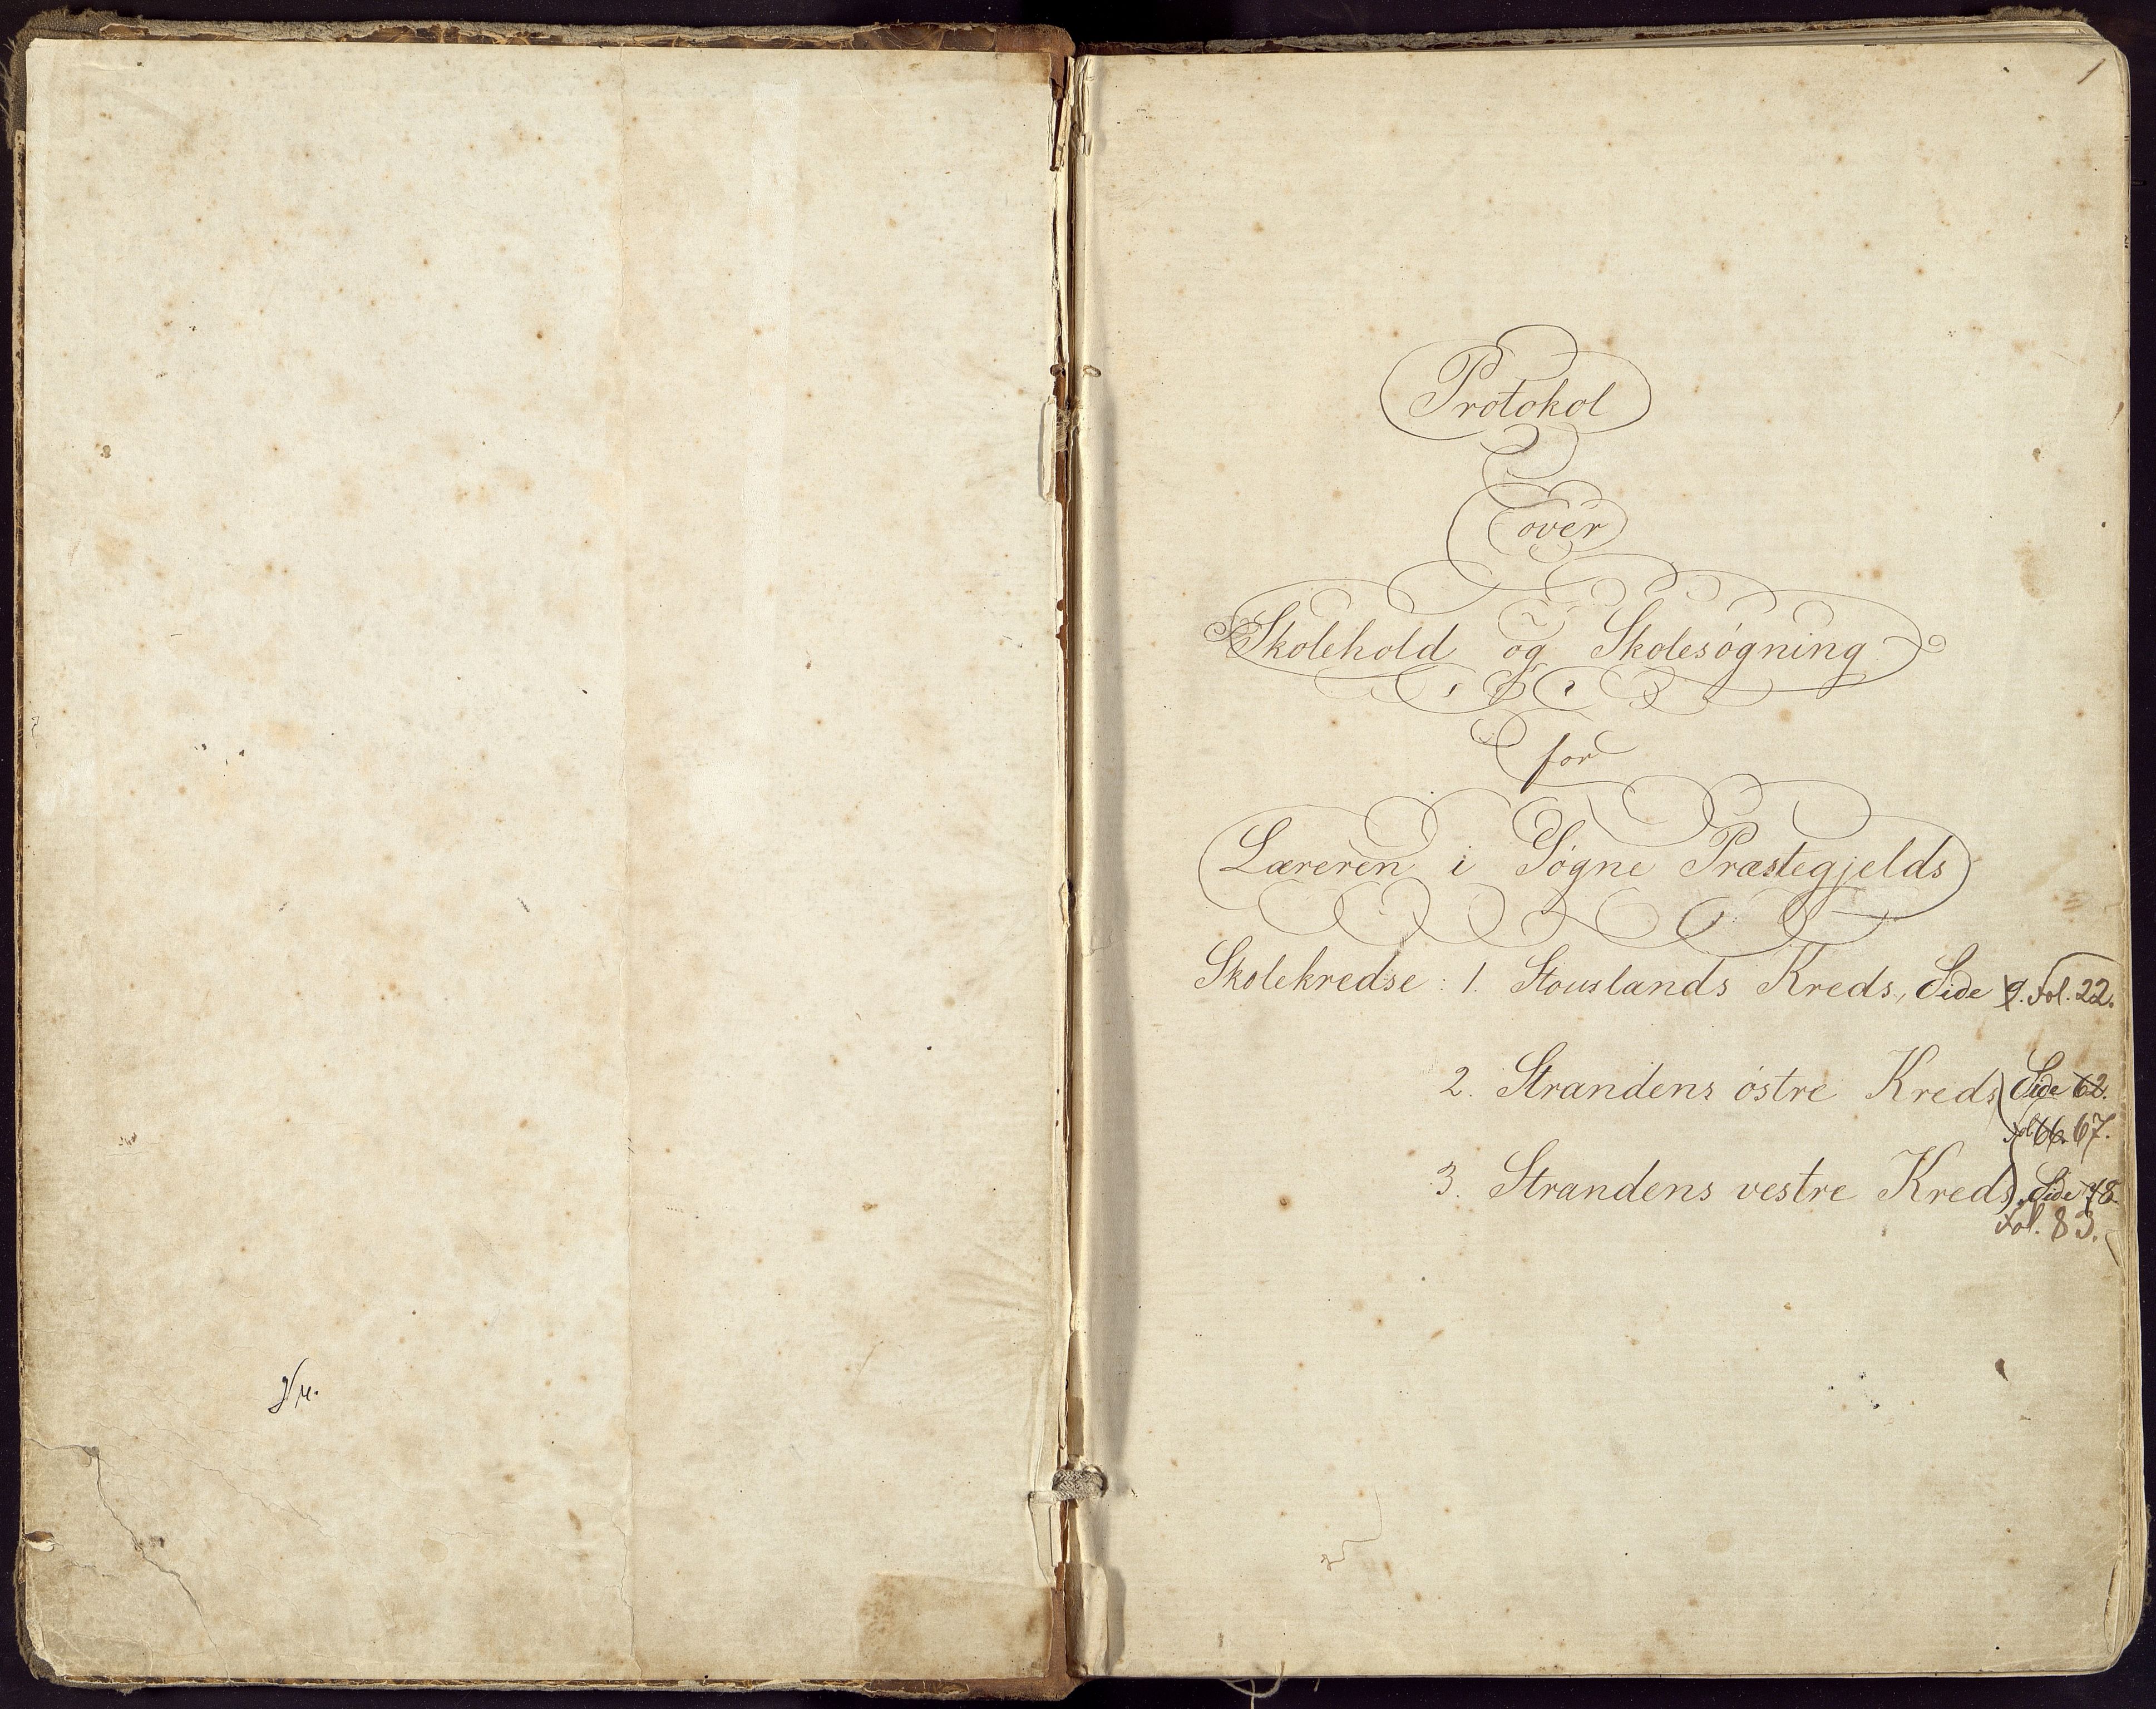 1
Protokol
over
Skolehold og Skolesøgning
for
Læreren i Søgne Præstegjelds
Skolekredse: 1. Stouslands Kreds, Side 9. Fol. 22.
2. Strandens østre Kreds Side 62.
Fol. 66. 67.
3. Strandens vestre Kreds, Side 78.
Fol. 83.